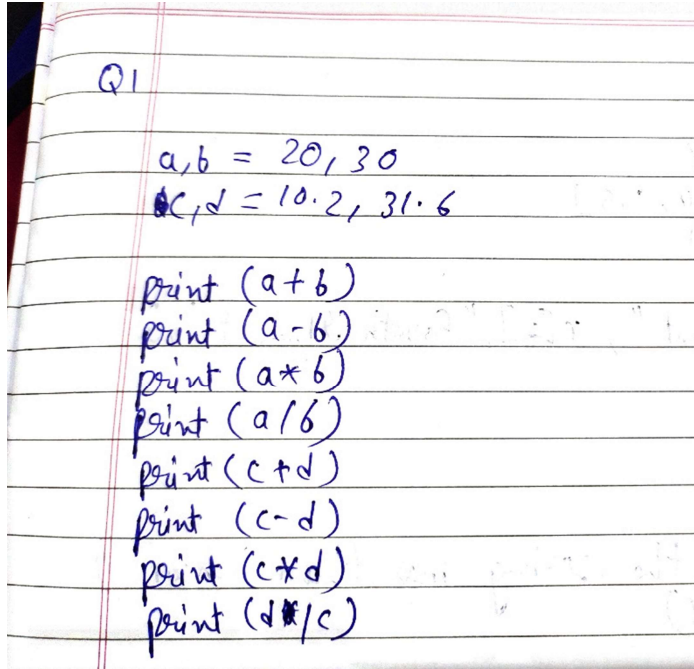 Q1
a,b = 20,30
c,d = 10.2, 31.6
print (a+b)
print (a-b)
print (a*b)
print (a/b)
print (c+d)
print (c-d)
print (c*d)
print (d/c)